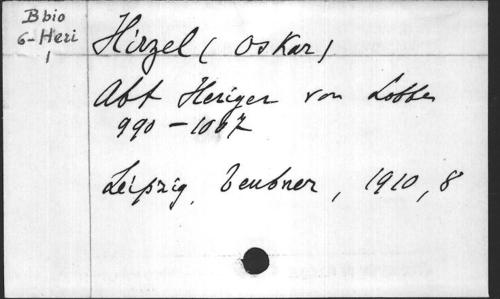 Bbio
6-Heri
1
Hirzel (Oskar)
Abt Heriger von Lobbes
990 - 1007
Leipzig, Teubner, 1910, 8